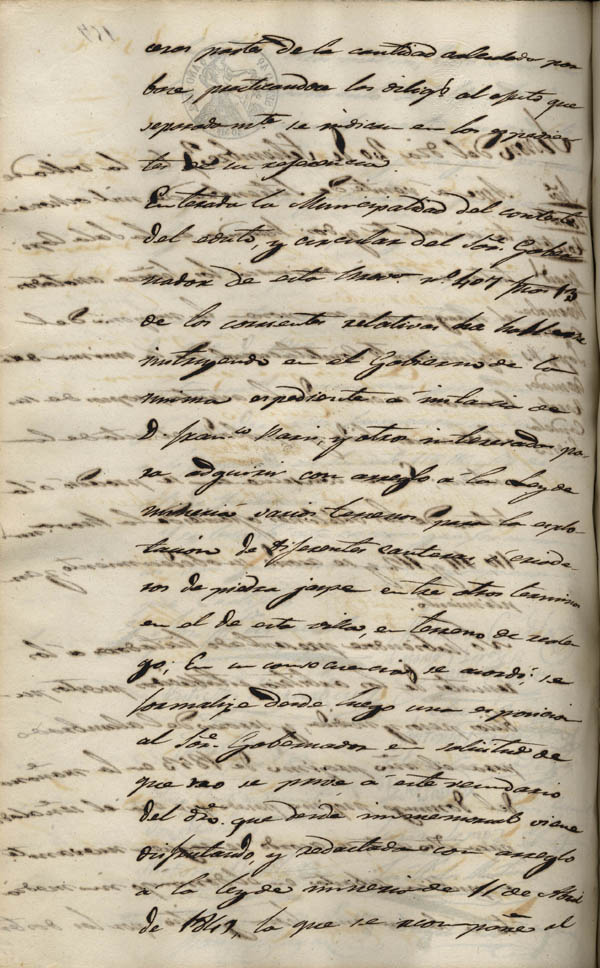 ceras partes de la cantidad calculada por
base, practicandose las diligs. al efecto que
separadamte. se indican en los expedien-
tes de su referencia.
Enterada la Municipalidad del contesto
del edicto, y circular del Sor. Gober-
nador de esta Prova. nº 407 13
de los corrientes relativas ha hallarse
instruyendo en el Gobierno de la
misma expediente a instancia de
D. Franco. Marin y otros interesados pa-
ra adquirir con arreglo a la Ley de
mineria varios terrenos para la esplo-
tacion de diferentes canteras criade-
ros de piedra jaspe entre otros terminos
en el de esta villa, en terreno de realen-
go; En su consecuencia se acordó: se
formalize desde luego una esposicion
al Sor. Gobernador en solicitud de
que no se prive á este vecindario
del dro. que desde inmemorial viene
disfrutando, y redactada con arreglo
á la ley de mineria de 11 de Abril
de 1849, la que se acompañe al